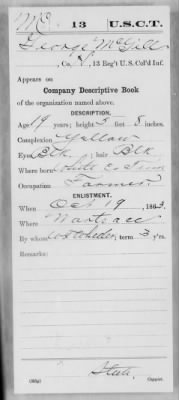 Mc 13 U.S.C.T.
George McGill
, Co. , 13 Reg't U.S. Col'd Inf.
Appears on
Company Descriptive Book
of the organization named above.
DESCRIPTION.
Age 19 years; height 5 feet 8 inches.
Complexion Yellow
Eyes Blk ; hair Blk
Where born White Co Tenn
Occupation Farmer
ENLISTMENT.
When Oct 19 , 1863.
Where Wartrace
By whom ; term 3 y'rs.
Remarks:
Copyist.